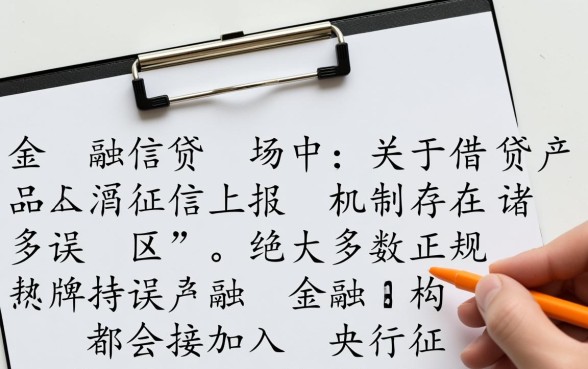 金 融信贷 场中：关于借贷产
品 征信上报 机制存在诸
多误 区”。绝大多数正规
牌持误 融 金融 构
都会接加入 央行征